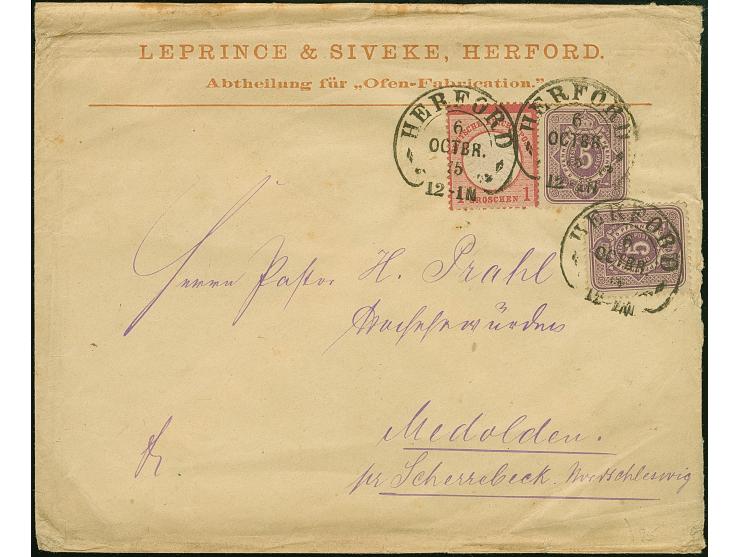 LEPRINCE & SIVEKE, HERFORD.
Abtheilung für „Ofen-Fabrication."
HERFORD
6
OCTBR.
75
12-1N
GROSCHEN 1
HERFORD
6
OCTBR.
12-1N
5
HERFORD
6
OCTBR.
12-1N
5
Herrn Pastor H. Prahl
Hochehrwürden
Medolden.
pr Scherrebeck. Nordschleswig